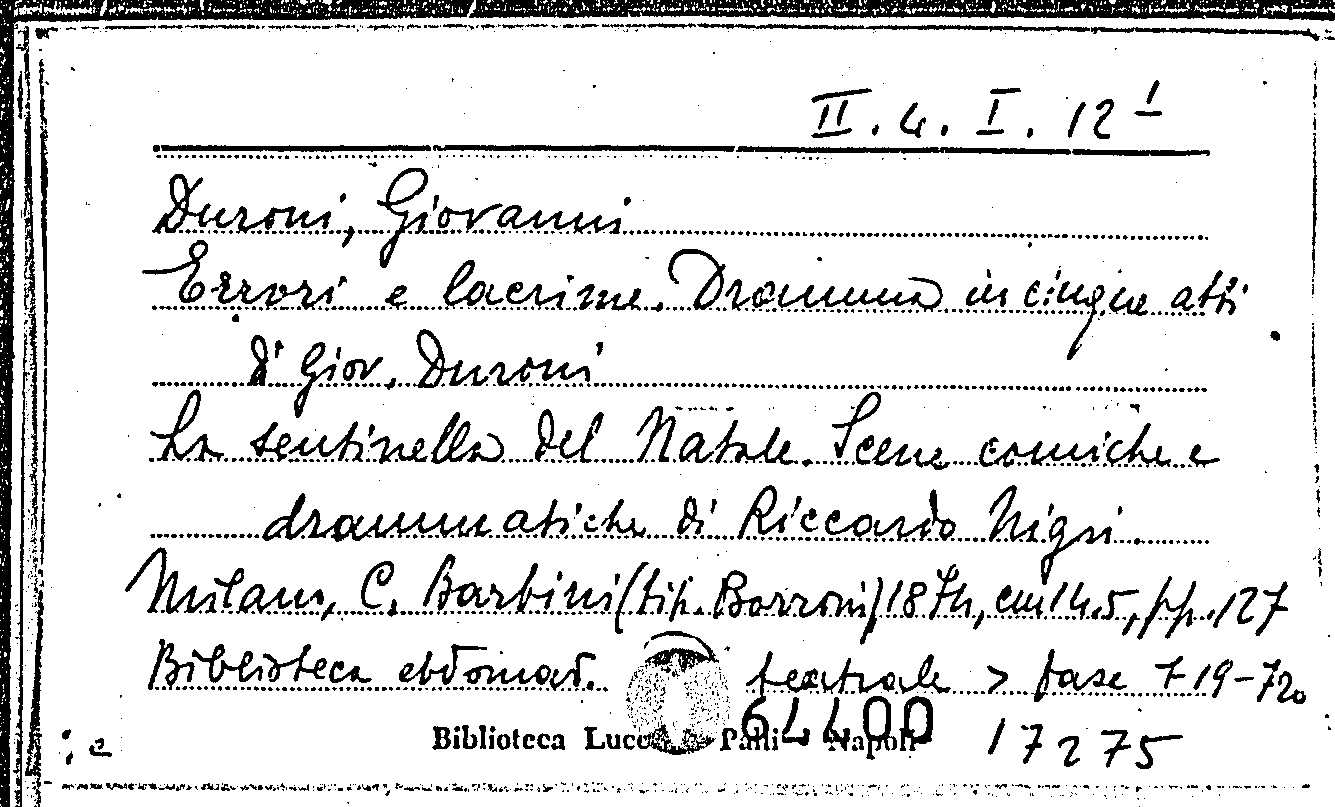 II. 4. I. 12 1
Duroni, Giovanni
Errori e lacrime. Dramma in cinque atti
di Giov. Duroni
La sentinella del Natale. Scene comiche e
drammatiche di Riccardo Nigri.
Milano, C. Barbini (tip. Borroni) 1874, cm 14.5, pp. 127
Biblioteca ebdomad. teatrale > fasc 719-720
64400
Biblioteca Lucchesi Palli Napoli
17275